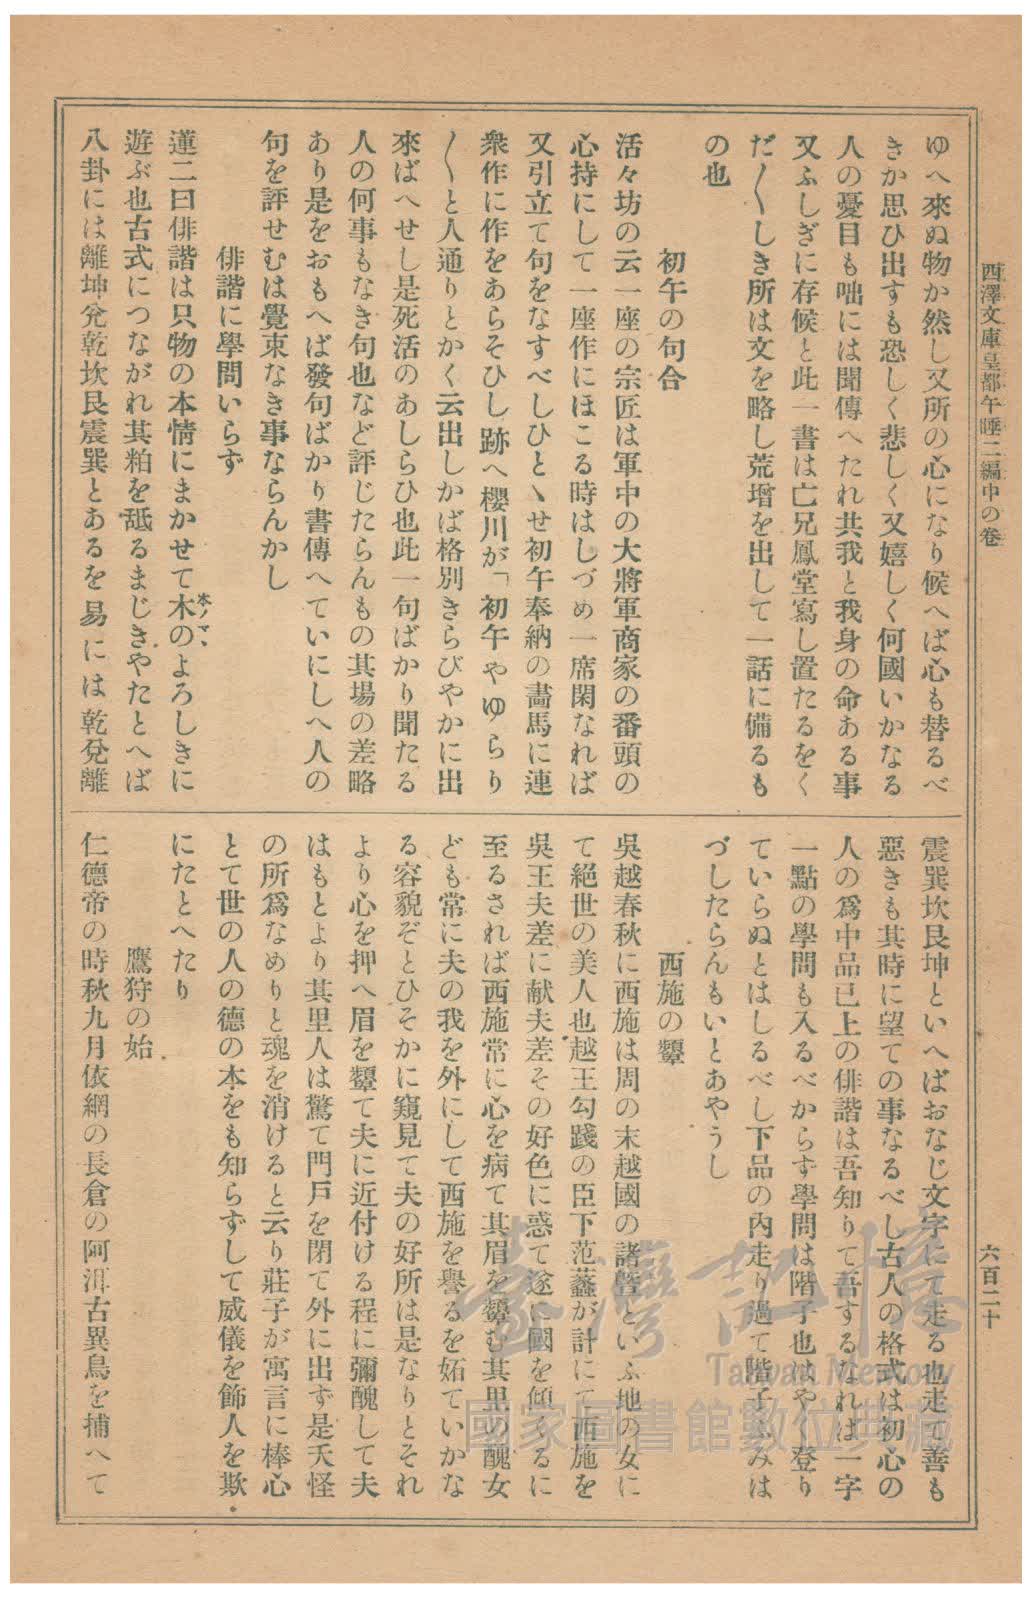 西澤文庫皇都午睡二編中の卷
六百二十
ゆへ來ぬ物か然し又所の心になり候へば心も替るべ
きか思ひ出すも恐しく悲しく又嬉しく何國いかなる
人の憂目も咄には聞傳へたれ共我と我身の命ある事
又ふしぎに存候と此一書は亡兄鳳堂寫し置たるをく
だ〱しき所は文を略し荒增を出して一話に備るも
の也
初午の句合
活々坊の云一座の宗匠は軍中の大將軍商家の番頭の
心持にして一座作にほこる時はしづめ一席閑なれば
又引立て句をなすべしひとゝせ初午奉納の畵馬に連
衆作に作をあらそひし跡へ櫻川が「初午やゆらり
〱と人通りとかく云出しかば格別きらびやかに出
來ばへせし是死活のあしらひ也此一句ばかり聞たる
人の何事もなき句也など評じたらんもの其場の差略
あり是をおもへば發句ばかり書傳へていにしへ人の
句を評せむは覺束なき事ならんかし
俳諧に學問いらず
蓮二曰俳諧は只物の本情にまかせて木のよろしきに
本ノマヽ
遊ぶ也古式につながれ其粕を舐るまじきやたとへば
八卦には離坤兌乾坎艮震巽とあるを易には乾兌離
震巽坎艮坤といへばおなじ文字にて走る也走て善も
惡きも其時に望ての事なるべし古人の格式は初心の
人の爲中品已上の俳諧は吾知りて吾するなれば一字
一點の學問も入るべからず學問は階子也はや登り
ていらぬとはしるべし下品の內走り過て階子ふみは
づしたらんもいとあやうし
西施の顰
吳越春秋に西施は周の末越國の諸曁といふ地の女に
て絕世の美人也越王勾踐の臣下范蠡が計にて西施を
吳王夫差に献夫差その好色に惑て遂に國を傾くるに
至るされば西施常に心を病て其眉を顰む其里の醜女
ども常に夫の我を外にして西施を譽るを妬ていかな
る容貌ぞとひそかに窺見て夫の好所は是なりとそれ
より心を押へ眉を顰て夫に近付ける程に彌醜して夫
はもとより其里人は驚て門戸を閉て外に出ず是夭怪
の所爲なめりと魂を消けると云り莊子が寓言に棒心
とて世の人の德の本をも知らずして威儀を飾人を欺
にたとへたり
鷹狩の始
仁德帝の時秋九月依網の長倉の阿洱古異鳥を捕へて
臺灣記憶
Taiwan Memory
國家圖書館數位典藏